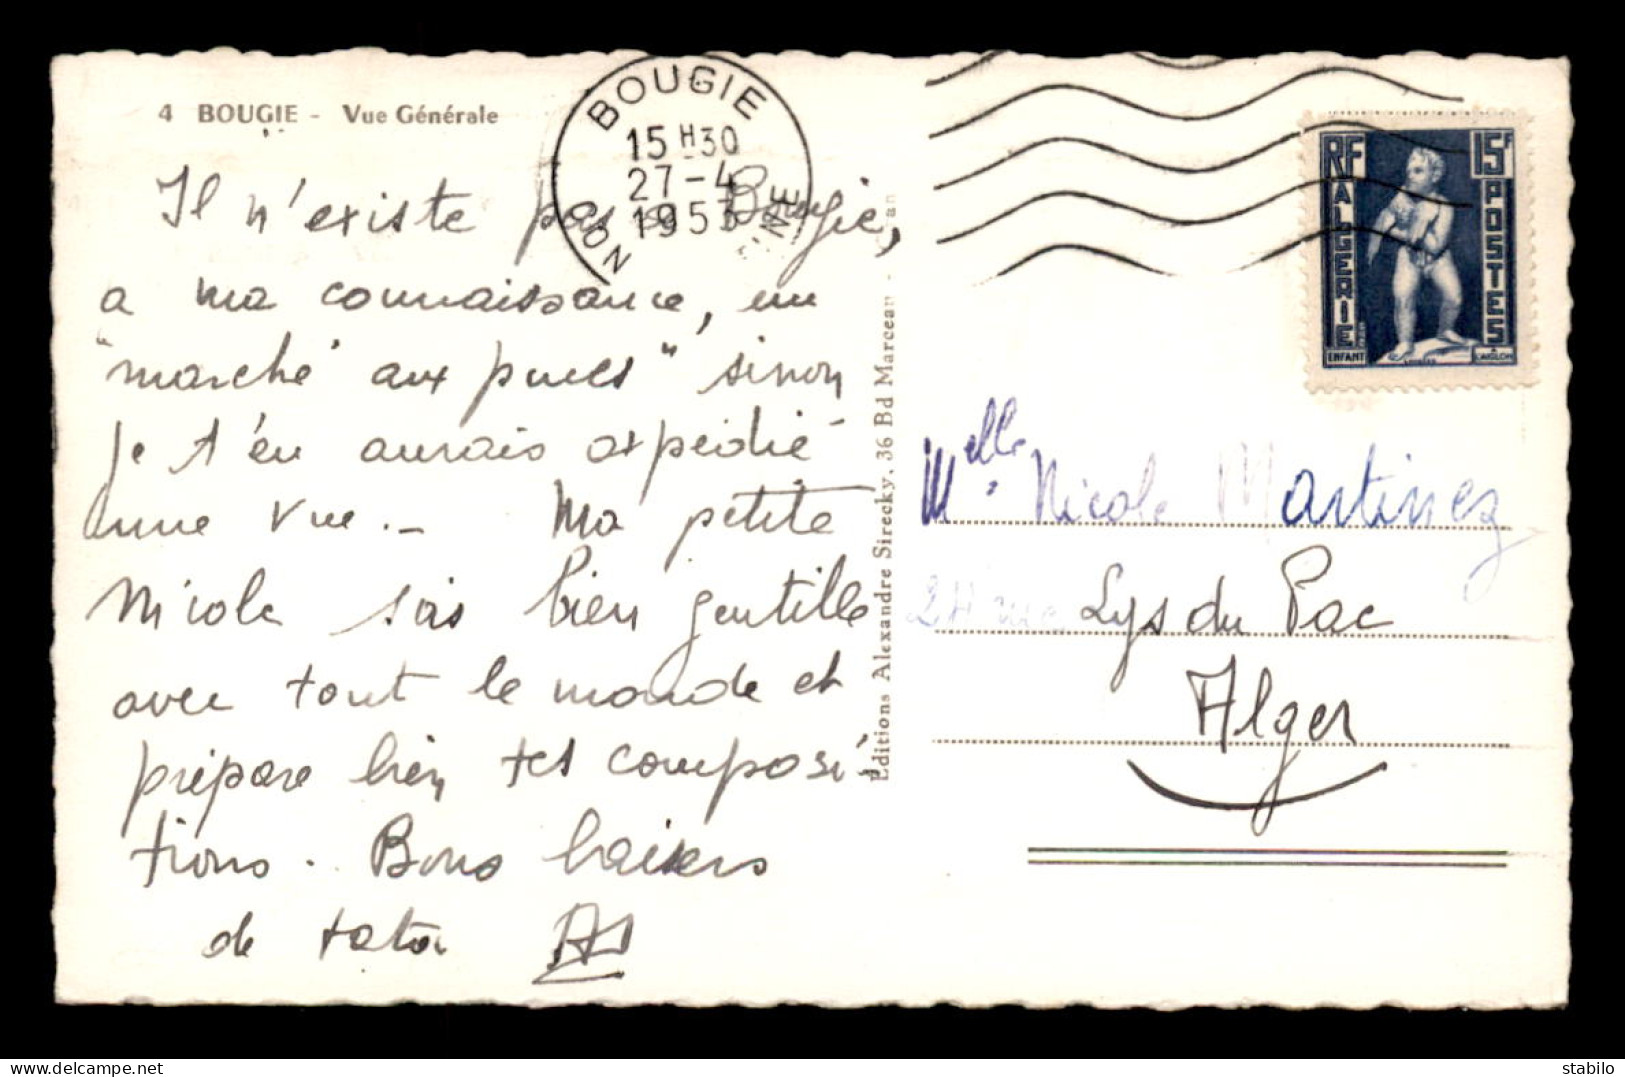 4 BOUGIE - Vue Générale
Il n'existe pas à Bougie,
a ma connaissance, un
"marché aux puces" sinon
Je t'en aurais expédié
une vue. - Ma petite
Nicole sois bien gentille
avec tout le monde et
prépare bien tes composi-
tions. Bons baisers
de tata
BOUGIE
15 H 30
27-4
1953
Éditions Alexandre Sirecky, 36 Bd Marceau -
RF
ALGERIE
15F
POSTES
ENFANT
A L'AIGLON
Melle Nicole Martinez
Lys du Pac
Alger
delcampe.net
slebilo